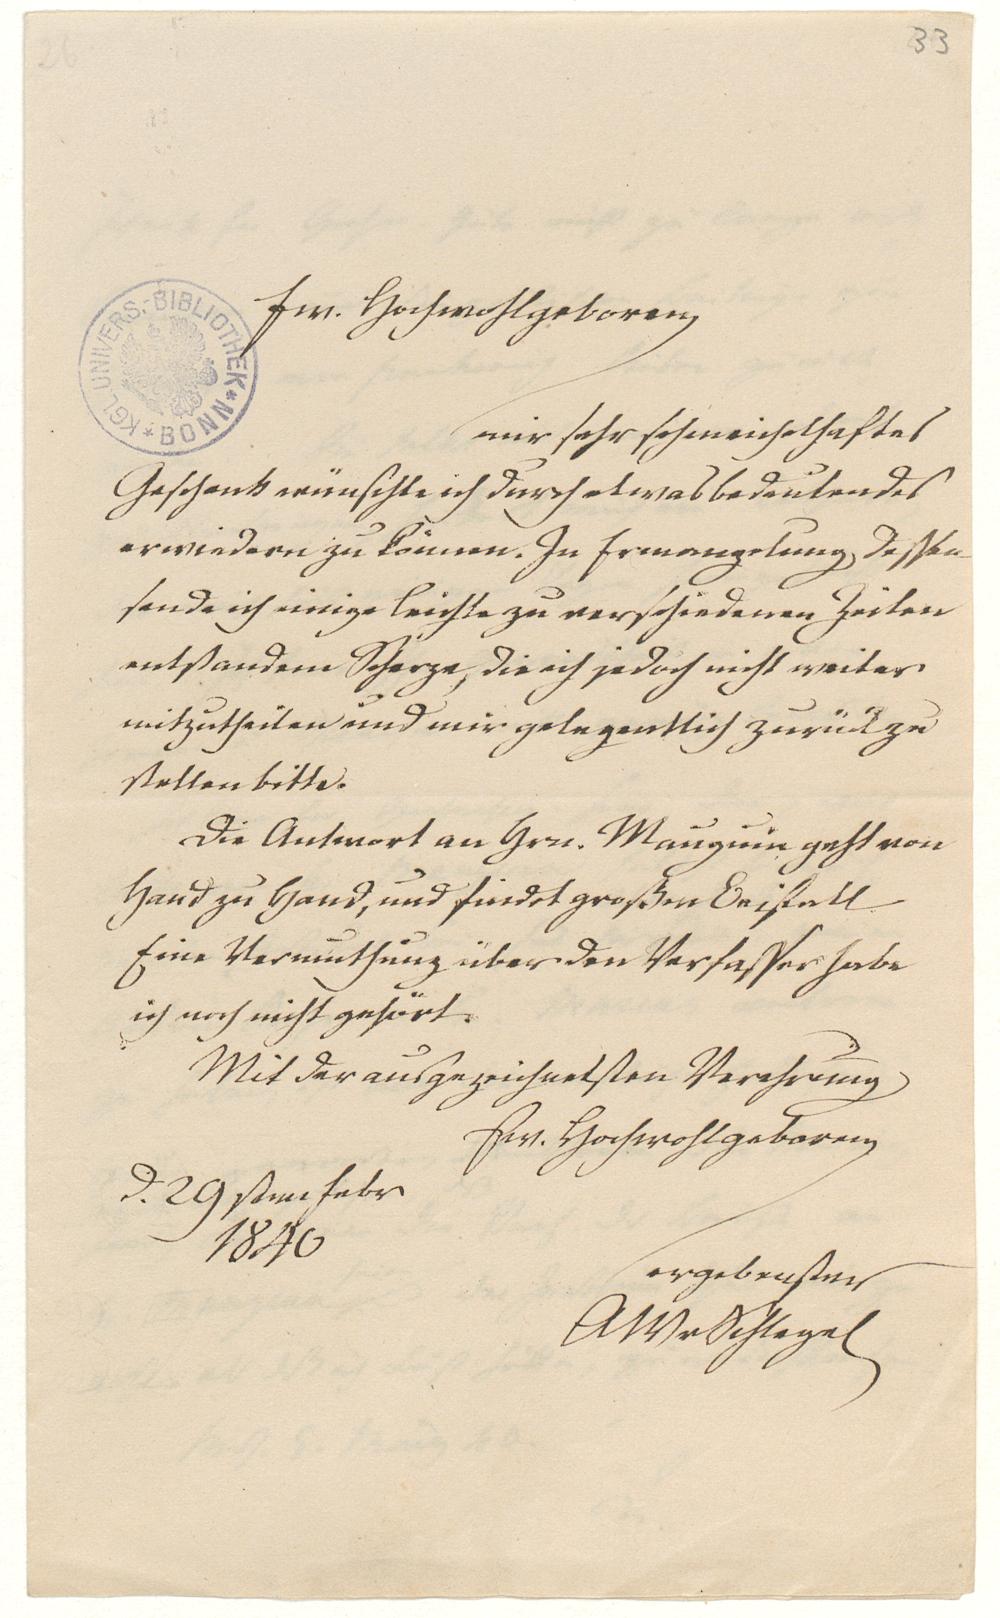 33
26
KGL. UNIVERS.-BIBLIOTHEK * BONN *
Ew. Hochwohlgeboren
mir sehr schmeichelhaftes
Geschenk wünschte ich durch etwas bedeutendes
erwiedern zu können. In Ermangelung dessen
sende ich einige leichte zu verschiedenen Zeiten
entstandene Scherze, die ich jedoch nicht weiter
mitzutheilen und mir gelegentlich zurück zu
stellen bitte.
Die Antwort an Hrn. Mauguin geht von
Hand zu Hand, und findet großen Beifall
Eine Vermuthung über den Verfasser habe
ich noch nicht gehört.
Mit der ausgezeichnetsten Verehrung
Ew. Hochwohlgeboren
d. 29sten Febr
1840
ergebenster
AWvSchlegel